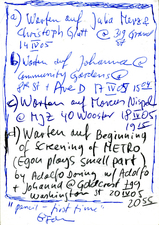 a) Warten auf Jaba Mavz &
Christoph Glatt @ 39 Grand
St 14 IV 05
b) Warten auf Johanna @
Community Gardens @
9th St + Ave D 17 IV 05 15
c) Warten auf Marcus Nispel
@ MJZ 40 Wooster 18 IV 05
d) Warten auf Beginning
of Screening of METRO
(Egon plays small part)
by Adolfo Doring w/ Adolfo
+ Johanna @ Goldcrest 799
Washington St 20 IV 05
2055
"pencil - first time"